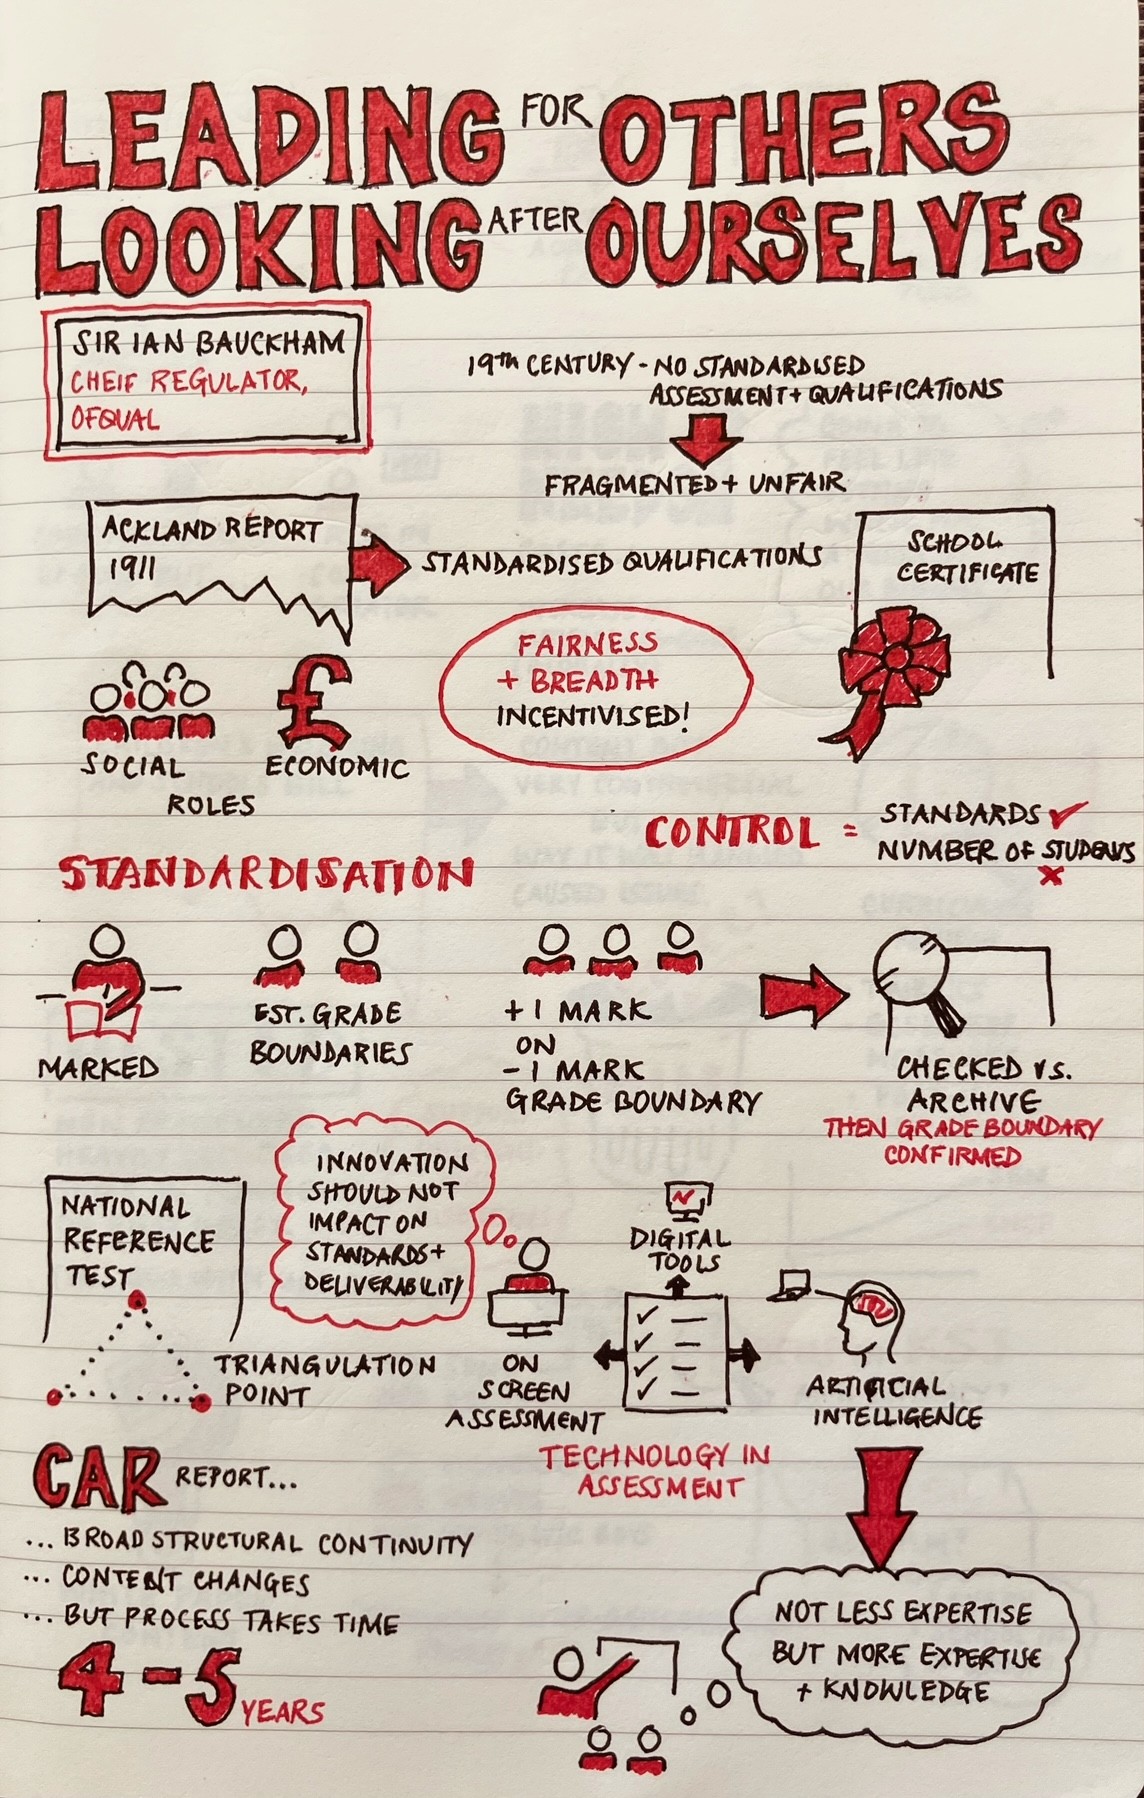 LEADING FOR OTHERS
LOOKING AFTER OURSELVES
SIR IAN BAUCKHAM
CHEIF REGULATOR,
OFQUAL
19TH CENTURY - NO STANDARDISED
ASSESSMENT + QUALIFICATIONS
FRAGMENTED + UNFAIR
ACKLAND REPORT
1911
STANDARDISED QUALIFICATIONS
SCHOOL
CERTIFICATE
FAIRNESS
+ BREADTH
INCENTIVISED!
£
SOCIAL
ECONOMIC
ROLES
CONTROL =
STANDARDS ✓
NUMBER OF STUDENTS
x
STANDARDISATION
MARKED
EST. GRADE
BOUNDARIES
+1 MARK
ON
-1 MARK
GRADE BOUNDARY
CHECKED VS.
ARCHIVE
THEN GRADE BOUNDARY
CONFIRMED
NATIONAL
REFERENCE
TEST
TRIANGULATION
POINT
INNOVATION
SHOULD NOT
IMPACT ON
STANDARDS +
DELIVERABILITY
ON
SCREEN
ASSESSMENT
DIGITAL
TOOLS
ARTIFICIAL
INTELLIGENCE
TECHNOLOGY IN
ASSESSMENT
CAR REPORT...
... BROAD STRUCTURAL CONTINUITY
... CONTENT CHANGES
... BUT PROCESS TAKES TIME
4-5 YEARS
NOT LESS EXPERTISE
BUT MORE EXPERTISE
+ KNOWLEDGE